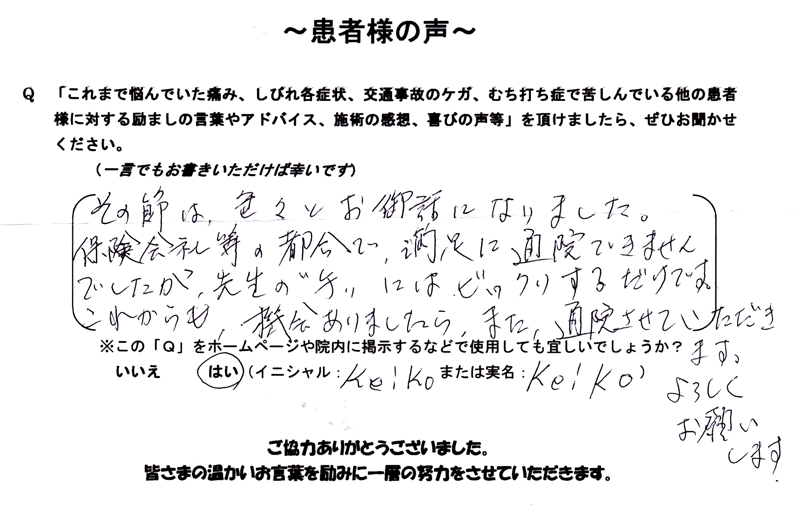 ～患者様の声～
Q 「これまで悩んでいた痛み、しびれ各症状、交通事故のケガ、むち打ち症で苦しんでいる他の患者
様に対する励ましの言葉やアドバイス、施術の感想、喜びの声等」を頂けましたら、ぜひお聞かせ
ください。
（一言でもお書きいただけば幸いです）
その節は、色々とお御話になりました。
保険会社等の都合で、満足に通院できません
でしたが、先生の〝手〟にはビックリするだけです。
これからも、機会ありましたら、また、通院させていただき
ます。
よろしく
お願い
します
※この「Q」をホームページや院内に掲示するなどで使用しても宜しいでしょうか？
いいえ はい（イニシャル：Keiko または実名：Keiko）
ご協力ありがとうございました。
皆さまの温かいお言葉を励みに一層の努力をさせていただきます。